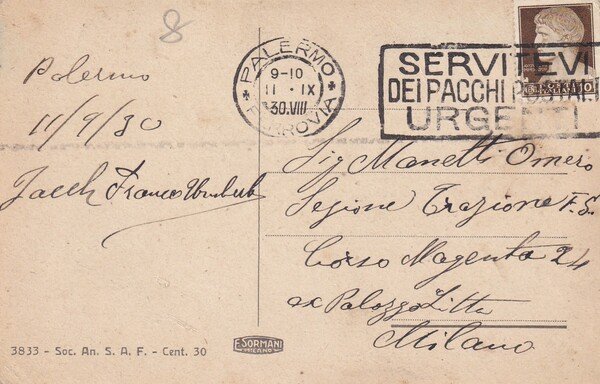 8
Palermo
11/9/30
Franco
PALERMO
9-10
11 · IX
30.VIII
FERROVIA
SERVITEVI
DEI PACCHI POSTALI
URGENTI
Sig Manetti Omero
Sezione Trazione F.S.
Corso Magenta 24
ex Palazzo Litta
Milano
3833 - Soc. An. S. A. F. - Cent. 30
F. SORMANI
MILANO